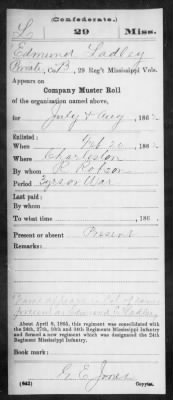 (Confederate.)
L 29 Miss.
Edmund Ladley
Private, Co. B, 29 Reg't Mississippi Vols.
Appears on
Company Muster Roll
of the organization named above,
for July & Aug, 186
Enlisted:
When Feb 20, 186
Where Charleston
By whom R. Robson
Period 3 yrs or War
Last paid:
By whom
To what time , 186 .
Present or absent Present
Remarks:
Name appears
as Edmund
About April 9, 1865, this regiment was consolidated with
the 24th, 27th, 30th and 34th Regiments Mississippi Infantry
and formed a new regiment which was designated the 24th
Regiment Mississippi Infantry.
Book mark:
G. E. Jones
(642) Copyist.